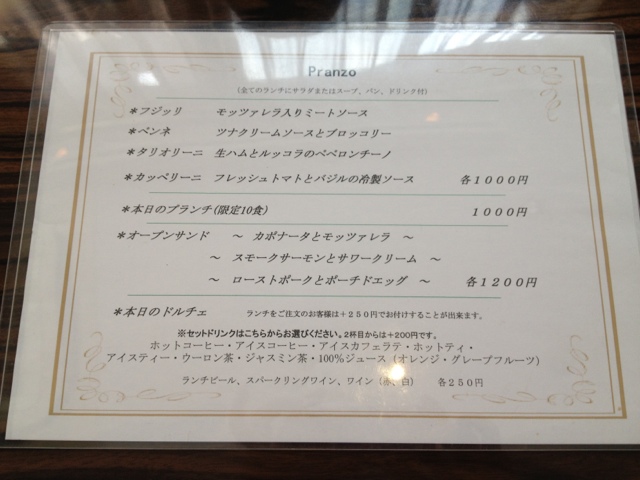 Pranzo
(全てのランチにサラダまたはスープ、パン、ドリンク付)
＊フジッリ モッツァレラ入りミートソース
＊ペンネ ツナクリームソースとブロッコリー
＊タリオリーニ 生ハムとルッコラのペペロンチーノ
＊カッペリーニ フレッシュトマトとバジルの冷製ソース 各１０００円
＊本日のブランチ(限定10食) １０００円
＊オープンサンド ～ カポナータとモッツァレラ ～
～ スモークサーモンとサワークリーム ～
～ ローストポークとポーチドエッグ ～ 各１２００円
＊本日のドルチェ ランチをご注文のお客様は＋２５０円でお付けすることが出来ます。
※セットドリンクはこちらからお選びください。2杯目からは＋200円です。
ホットコーヒー・アイスコーヒー・アイスカフェラテ・ホットティ・
アイスティー・ウーロン茶・ジャスミン茶・100％ジュース（オレンジ・グレープフルーツ）
ランチビール、スパークリングワイン、ワイン（赤、白） 各２５０円